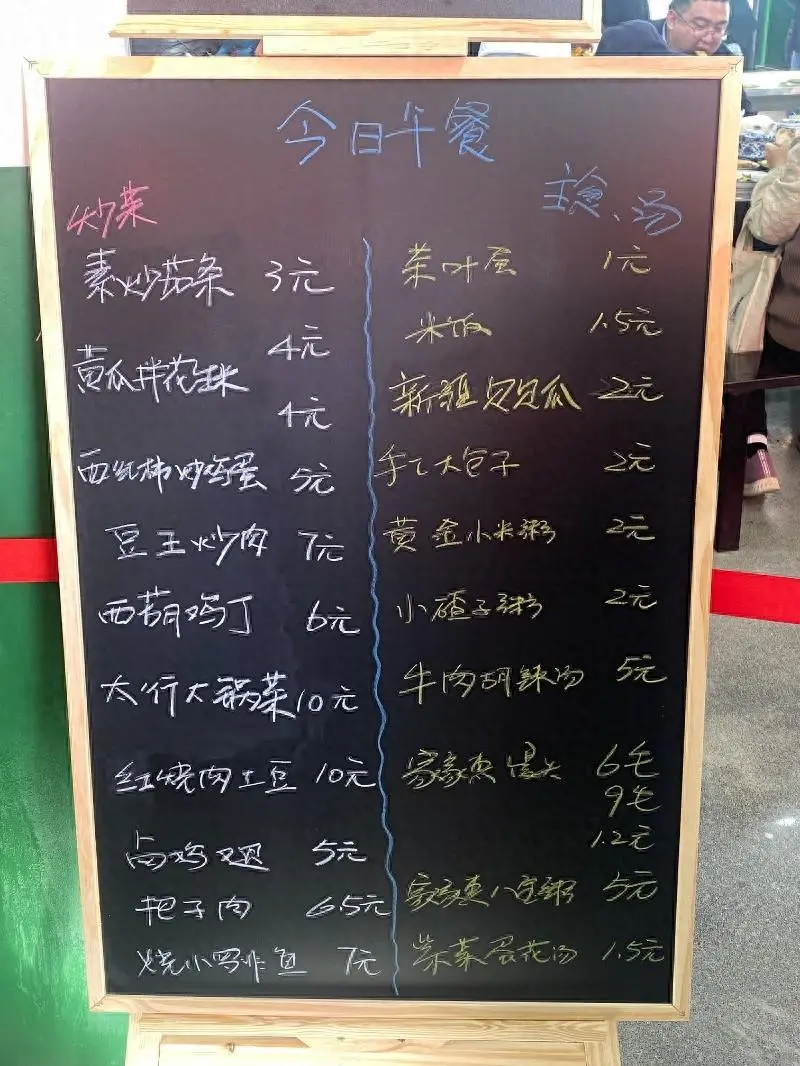 今日午餐
炒菜
素炒茄条 3元
4元
黄瓜拌花生米
4元
西红柿炒鸡蛋 5元
豆王炒肉 7元
西葫鸡丁 6元
太行大锅菜 10元
红烧肉土豆 10元
卤鸡翅 5元
把子肉 6.5元
烧小罗非鱼 7元
主食、汤
茶叶蛋 1元
米饭 1.5元
新疆贝贝瓜 2元
手工大包子 2元
黄金小米粥 2元
小碴子粥 2元
牛肉胡辣汤 5元
馒头 6毛
9毛
1.2元
八宝粥 5元
紫菜蛋花汤 1.5元